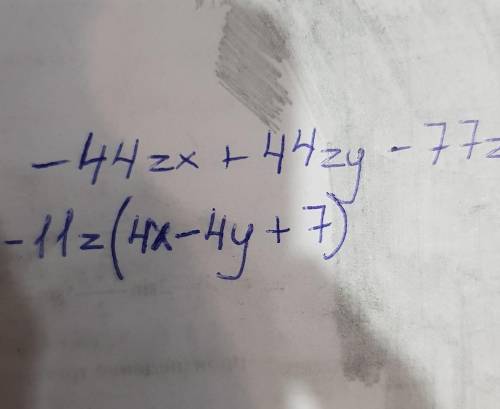 -44zx + 44zy - 77z
-11z(4x-4y+7)